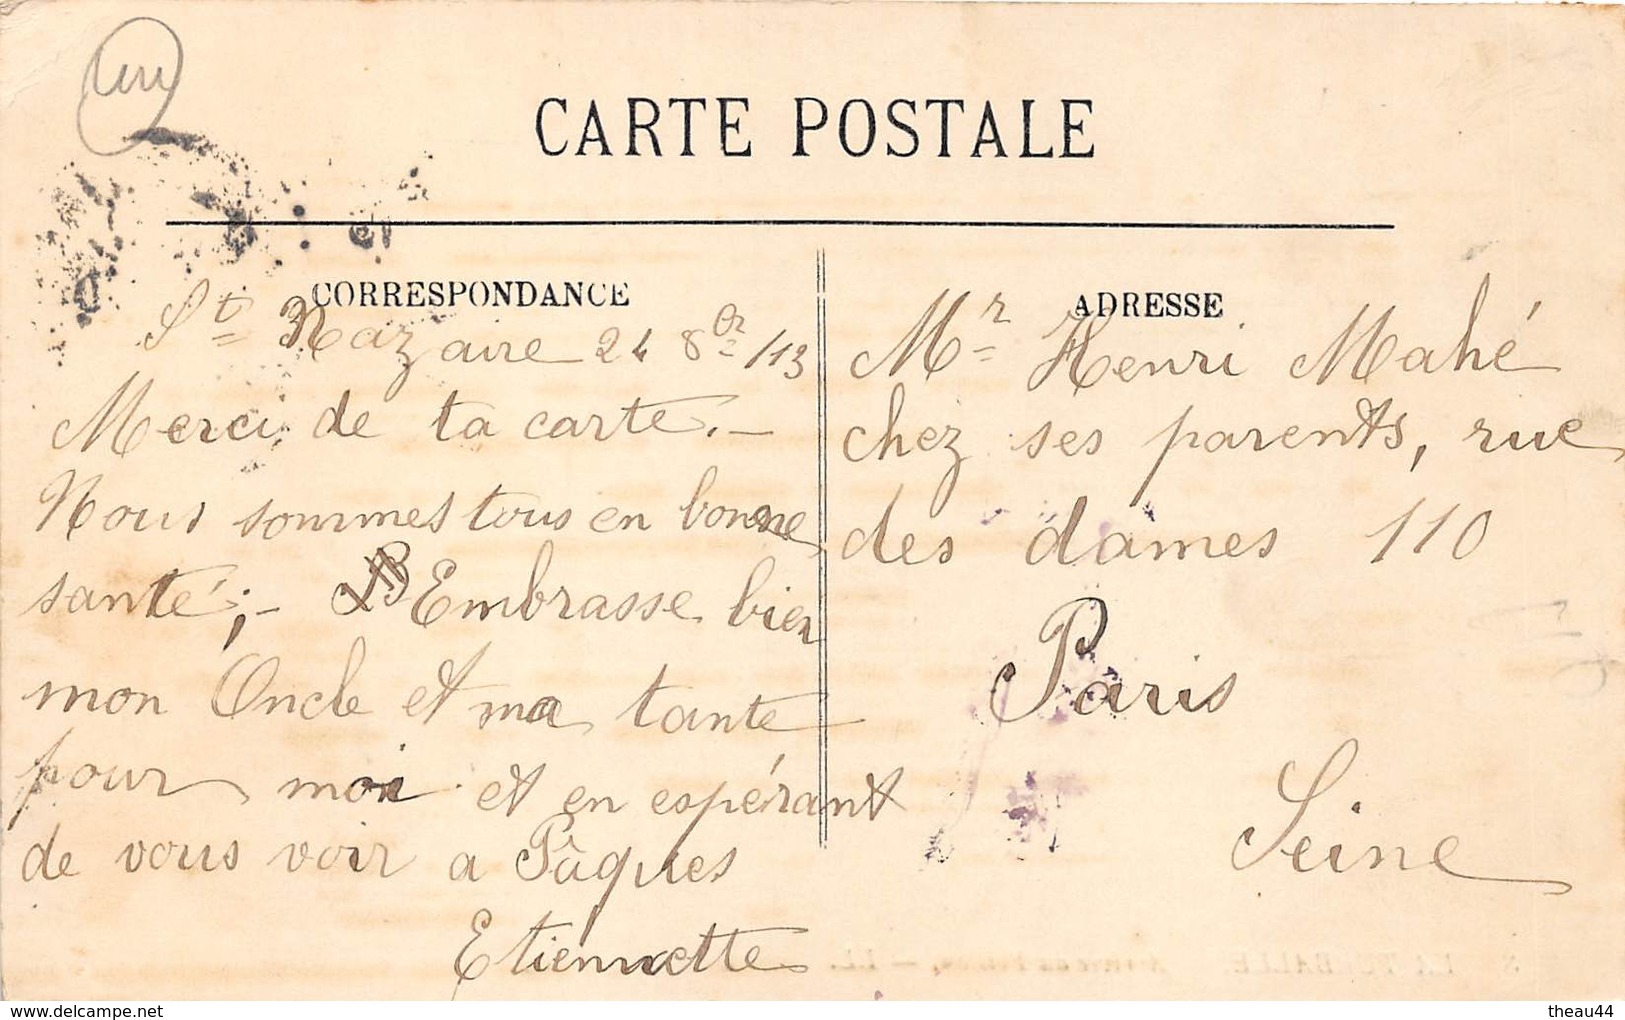 CARTE POSTALE
CORRESPONDANCE
St Nazaire 24 8bre /13
Merci de ta carte. -
Nous sommes tous en bonne
santé; - Embrasse bien
mon Oncle et ma tante
pour moi et en espérant
de vous voir a Pâques
Etiennette
ADRESSE
Mr Henri Mahé
chez ses parents, rue
des dames 110
Paris
Seine
www.delcampe.net
theau44